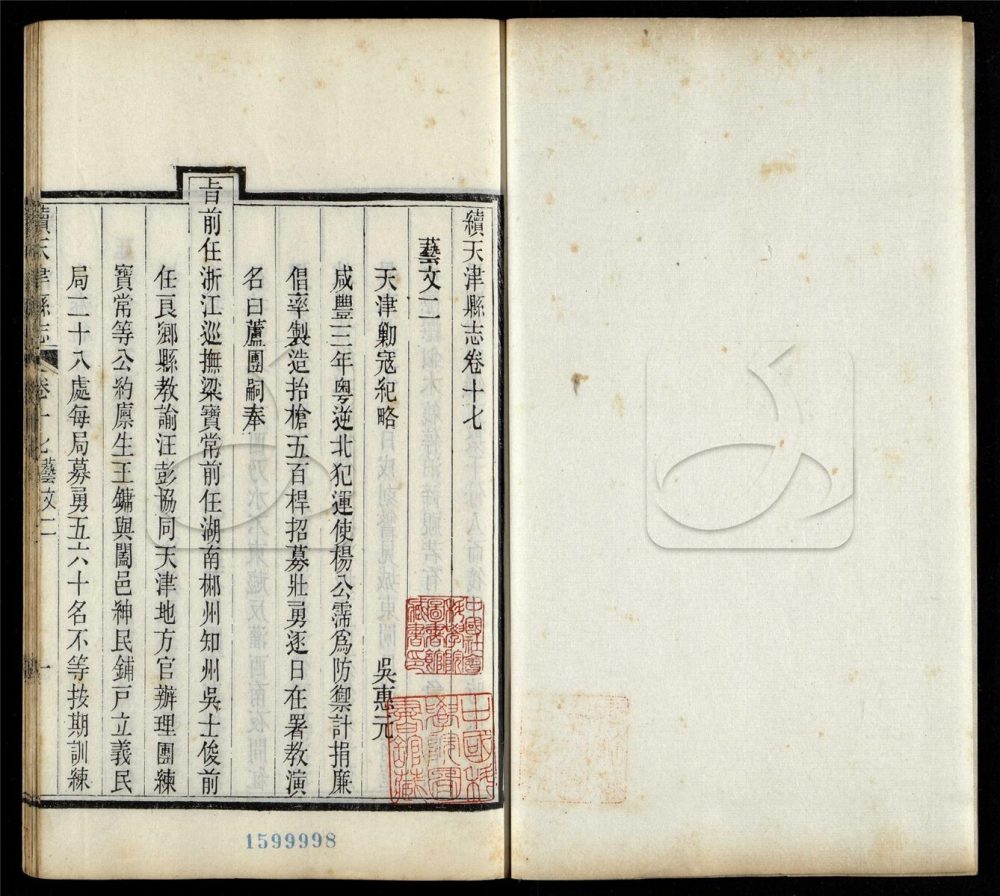 續天津縣志卷十七
藝文二
天津勦寇紀略 吳惠元
咸豐三年粵逆北犯運使楊公霈爲防禦計捐廉
倡率製造抬槍五百桿招募壯勇逐日在署教演
名曰蘆團嗣奉
旨前任浙江巡撫梁寶常前任湖南郴州知州吳士俊前
任良鄉縣教諭汪彭協同天津地方官辦理團練
寶常等公約廩生王鏞與闔邑紳民鋪戶立義民
局二十八處每局募勇五六十名不等按期訓練
續天津縣志 卷十七藝文二 一
中國社會
科學院
圖書館
藏書印
中國科
學院圖
書館藏
1599998